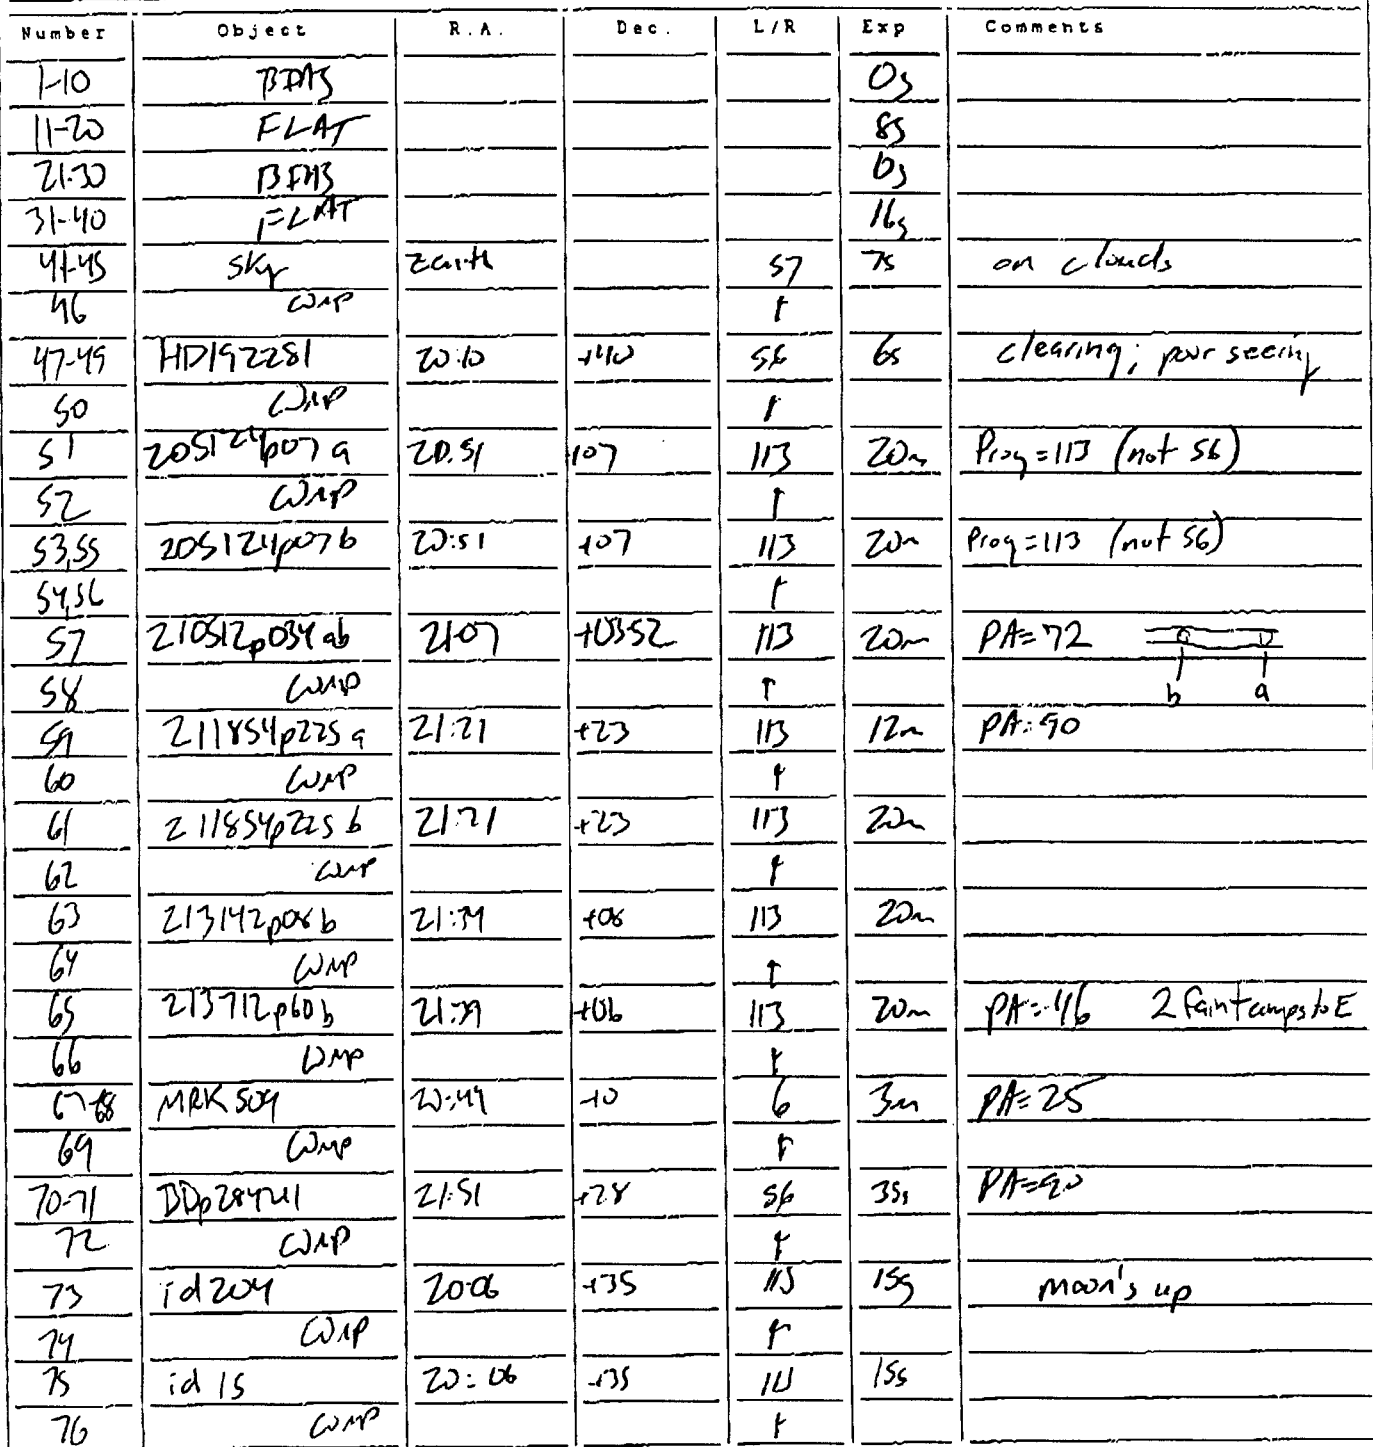 Number Object R.A. Dec. L/R Exp Comments
1-10 BIAS 0s
11-20 FLAT 8s
21-30 BIAS 0s
31-40 FLAT 16s
41-45 Sky Zenith 57 7s on clouds
46 comp ↑
47-49 HD192281 20:10 +40 56 6s clearing; poor seeing
50 comp ↑
51 205124p07a 20:51 +07 113 20m Prog=113 (not 56)
52 comp ↑
53,55 205124p07b 20:51 +07 113 20m Prog=113 (not 56)
54,56 ↑
57 210512p034ab 2107 +0352 113 20m PA=72
58 comp ↑ b a
59 211854p225a 21:21 +23 113 12m PA=90
60 comp ↑
61 211854p225b 21:21 +23 113 20m
62 comp ↑
63 213142p08b 21:34 +08 113 20m
64 comp ↑
65 213712p60b 21:39 +06 113 20m 2 faint comps to E
66 comp ↑
67-68 MRK509 20:44 -10 6 3m PA=25
69 comp ↑
70-71 BDp284211 21:51 +28 56 35s PA=90
72 comp ↑
73 id204 20:06 +35 113 15s moon's up
74 comp ↑
75 id15 20:06 +35 113 15s
76 comp ↑